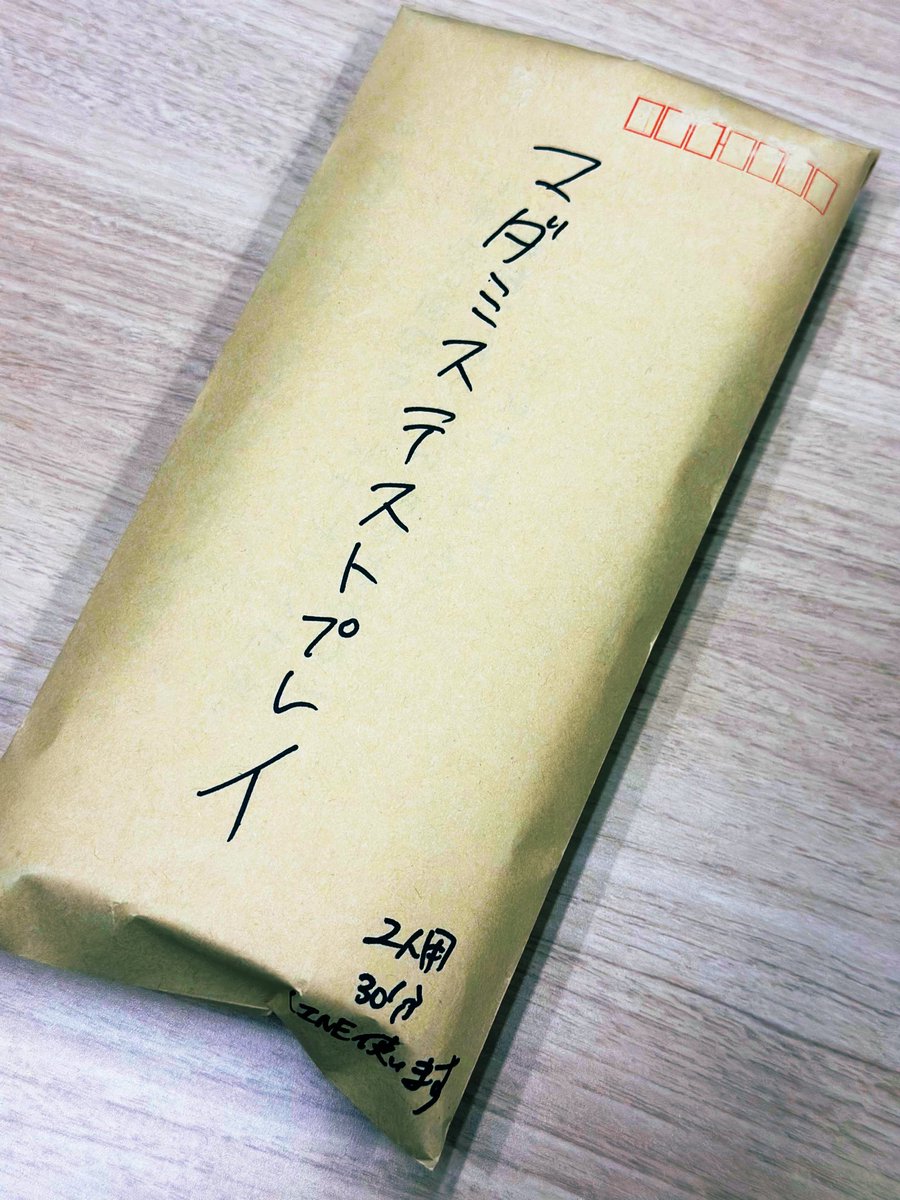 マダミステストプレイ
2人用
30分
LINE使います